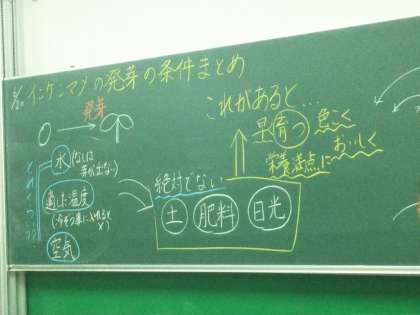 5/20 インゲンマメの発芽の条件まとめ
発芽
水(なしは芽が出ない)
適した温度
(冷ぞう庫に入れると×)
空気
絶対でない
土 肥料 日光
これがあると…
早く育つ 色こく
栄養満点に おいしく